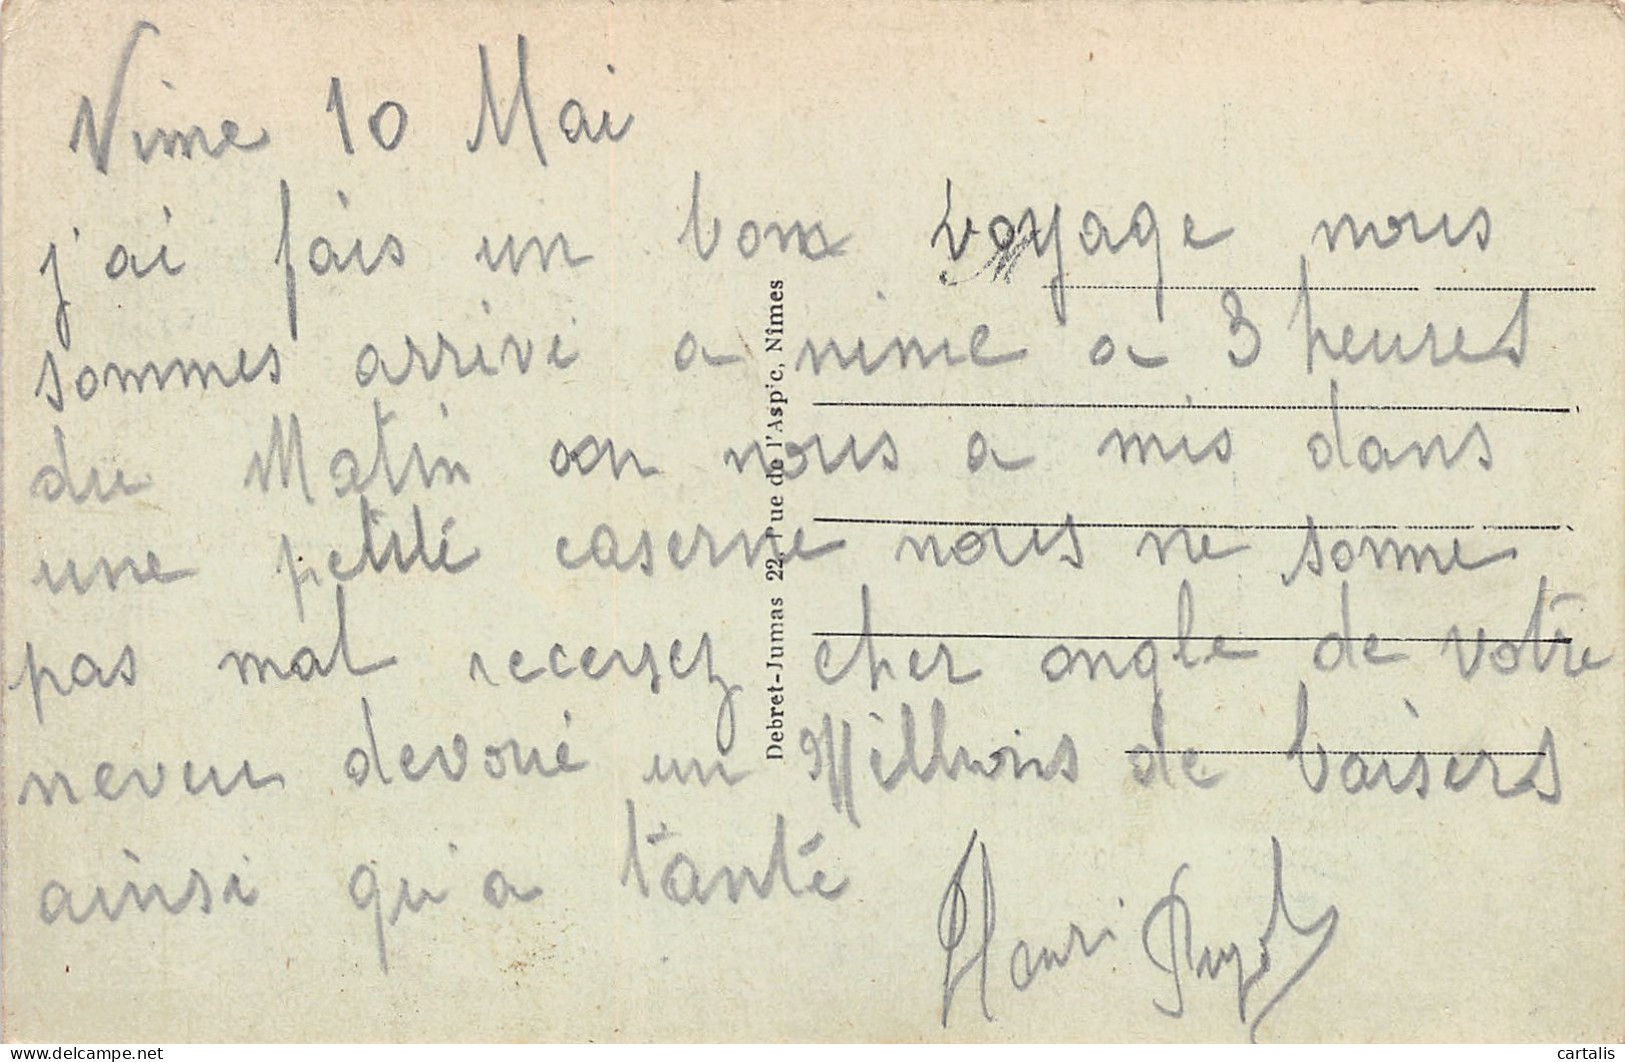 Nime 10 Mai
j'ai fais un bon voyage nous
sommes arrivé a nime a 3 heures
du Matin on nous a mis dans
une petité caserne nous ne somme
pas mal recersez cher ongle de votre
neveu devoué un Millions de baisers
ainsi qu'a tanté
Henri
Debret-Jumas 22, Rue de l'Aspic, Nîmes
delcampe.net
cartalis